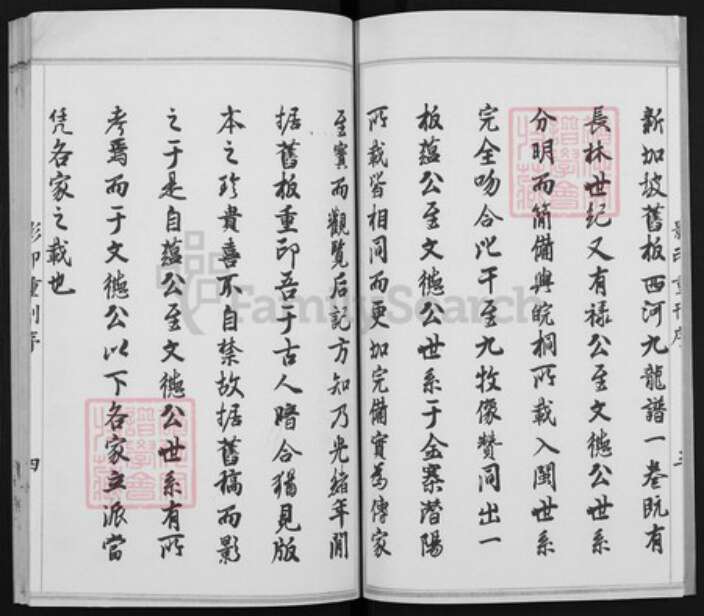 新加坡舊板西河九龍譜一卷既有
長林世紀又有祿公至文德公世系
分明而簡備與皖桐所載入閩世系
完全吻合比干至九牧像贊同出一
板蘊公至文德公世系于金寨潛陽
所載皆相同而更加完備實為傳家
至寶而觀覽后記方知乃光緒年間
据舊板重印吾于古人暗合猶見版
本之珍貴喜不自禁故据舊稿而影
之于是自蘊公至文德公世系有所
考焉而于文德公以下各家立派當
凭各家之載也
影印重刊序
三
影印重刊序
四
FamilySearch